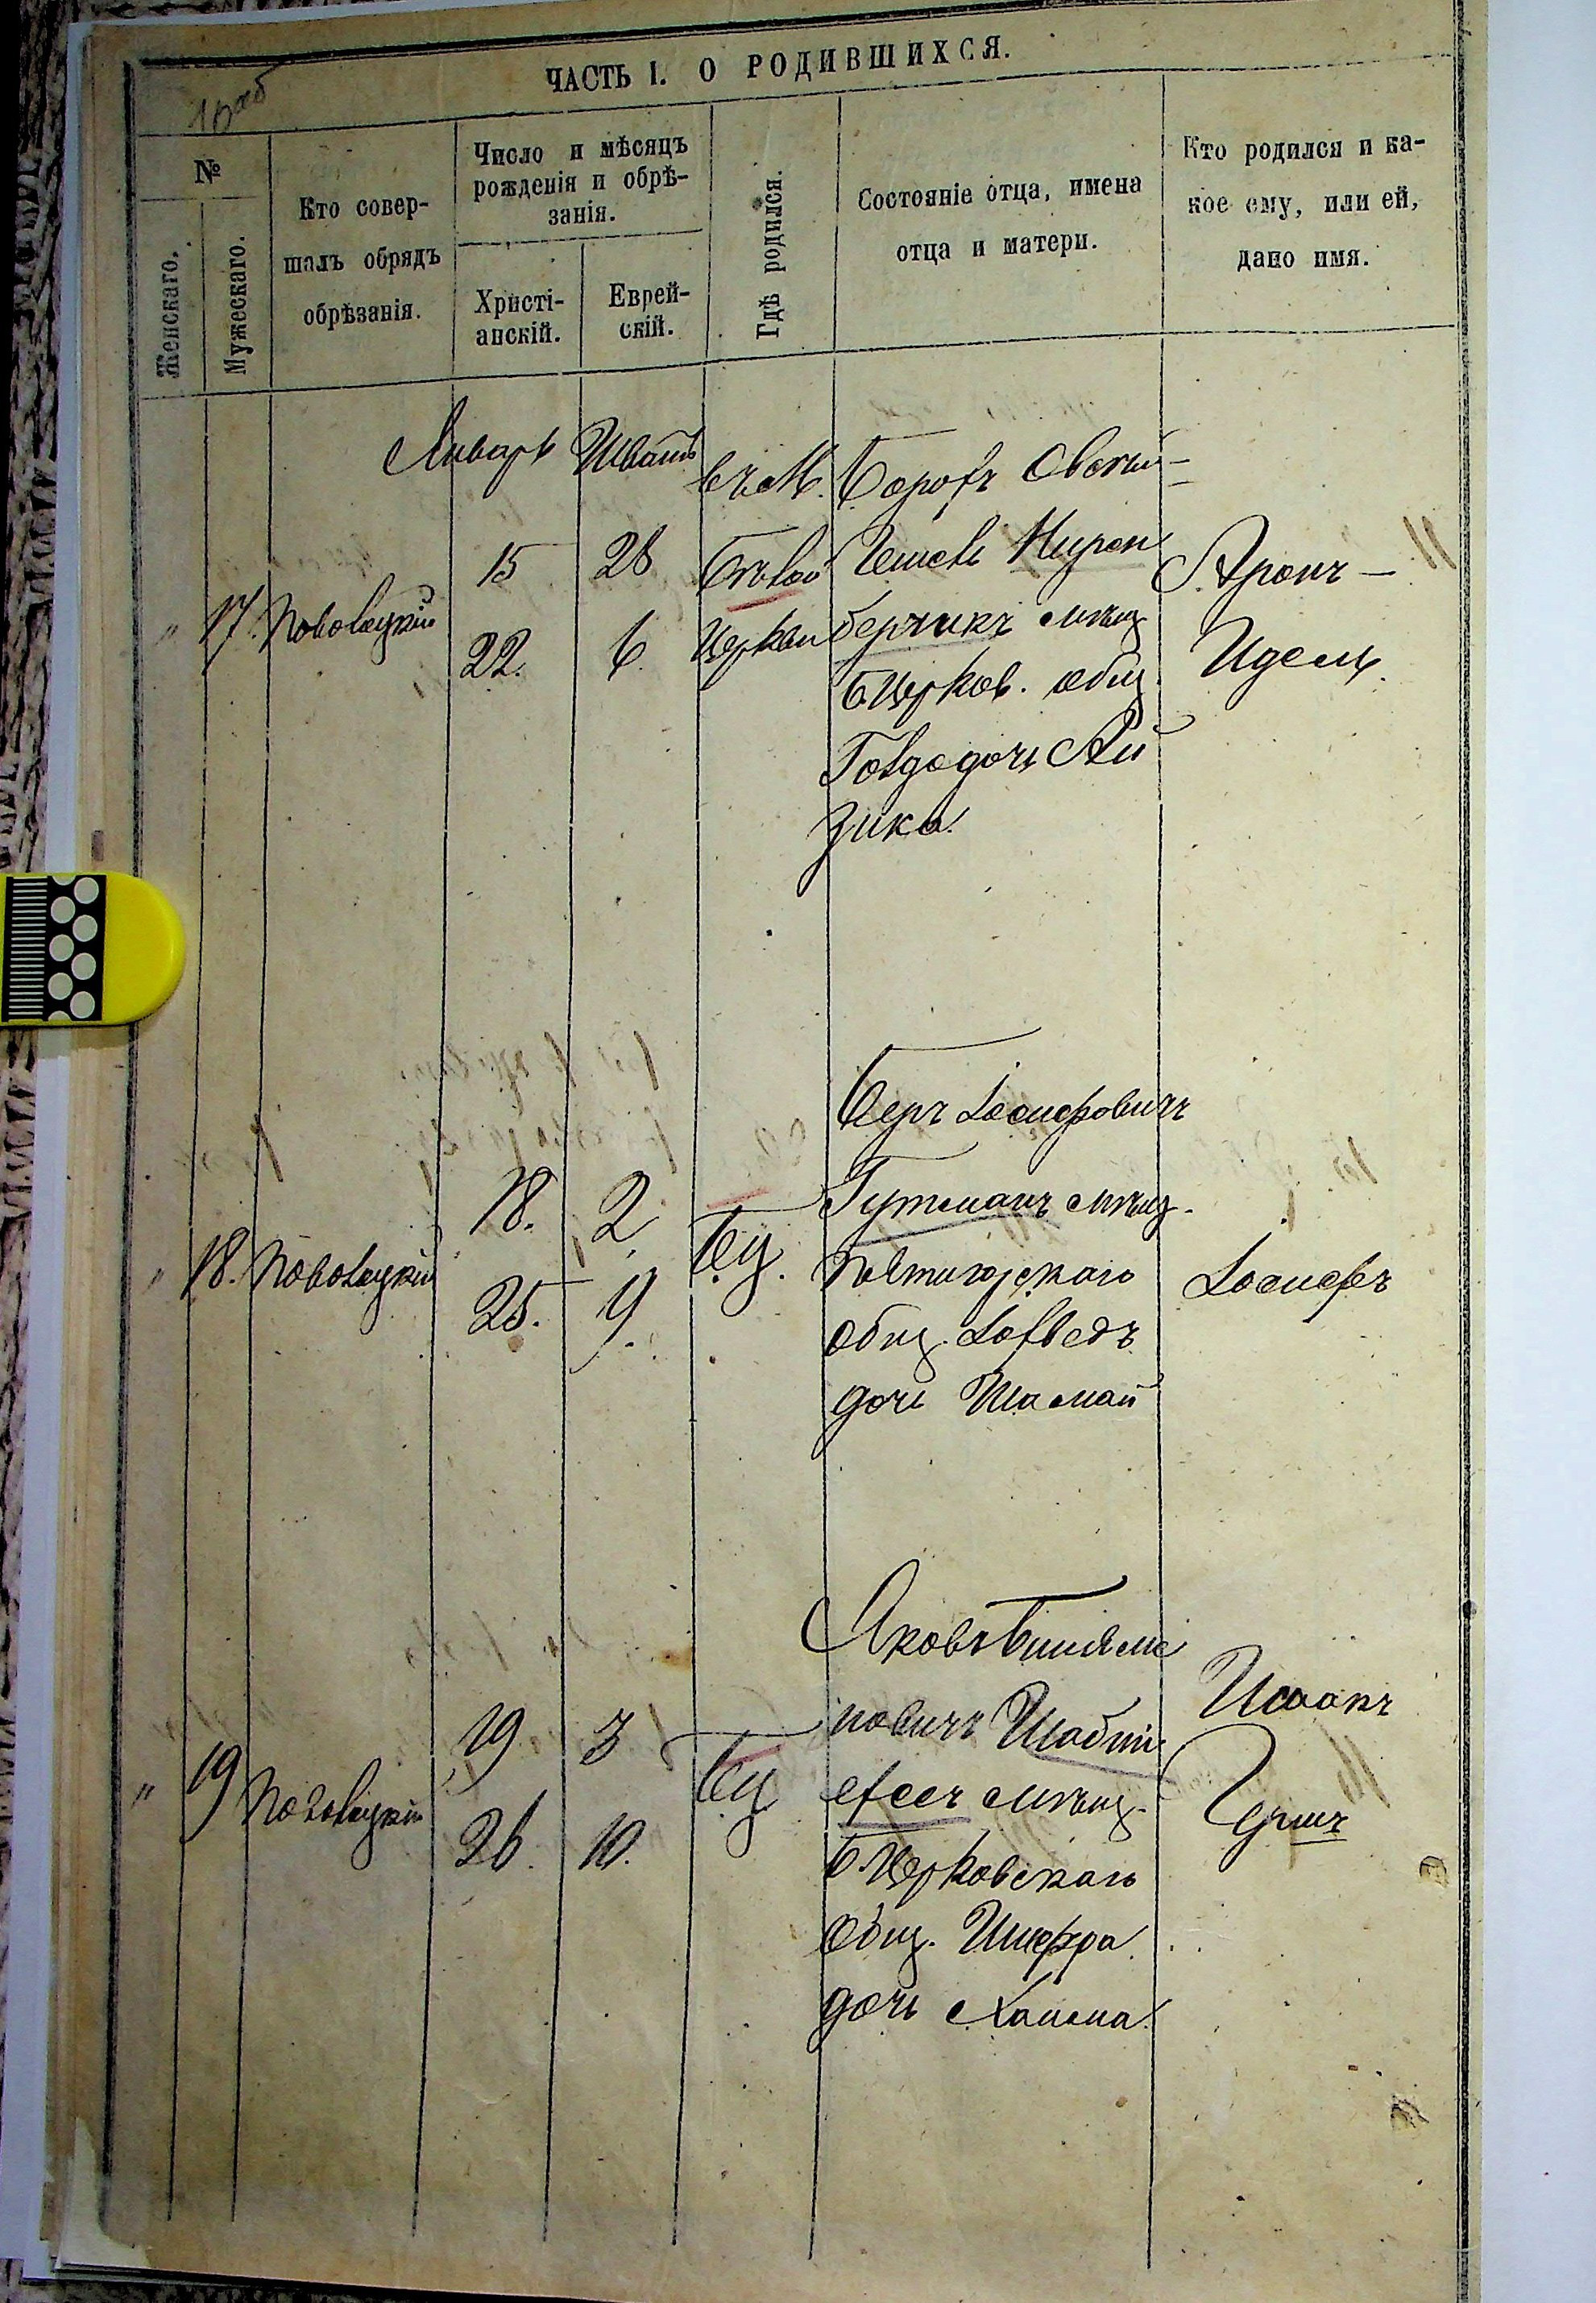 ЧАСТЬ I. О РОДИВШИХСЯ.
№
Женскаго.
Мужескаго.
Кто совер-
шалъ обрядъ
обрѣзанія.
Число и мѣсяцъ
рожденія и обрѣ-
занія.
Христі-
анскій.
Еврей-
скій.
Гдѣ родился.
Состояніе отца, имена
отца и матери.
Кто родился и ка-
кое ему, или ей,
дано имя.
Январь Шватъ
" 17. Поволоцкій
15 28
22. 6.
въ М.
Бѣлой
Церкви
Борохъ Овсѣй-
Гершъ
берчикъ мѣщ
Б. Церков. общ.
Голда дочь Ай
зика.
Аронъ —
Идель.
" 18. Поволоцкій
18. 2
25. 9.
БЦ.
Беръ Іосифовичъ
Гутманъ мѣщ.
Пятигорскаго
общ.
дочь Шамай
Іосифъ
" 19 Поволоцкій
19. 3
26. 10.
БЦ
Яковъ Биньями
новичъ Шабли
мѣщ.
Б. Церковскаго
Общ. Шифра
дочь Хаима.
Исаакъ
Гершъ